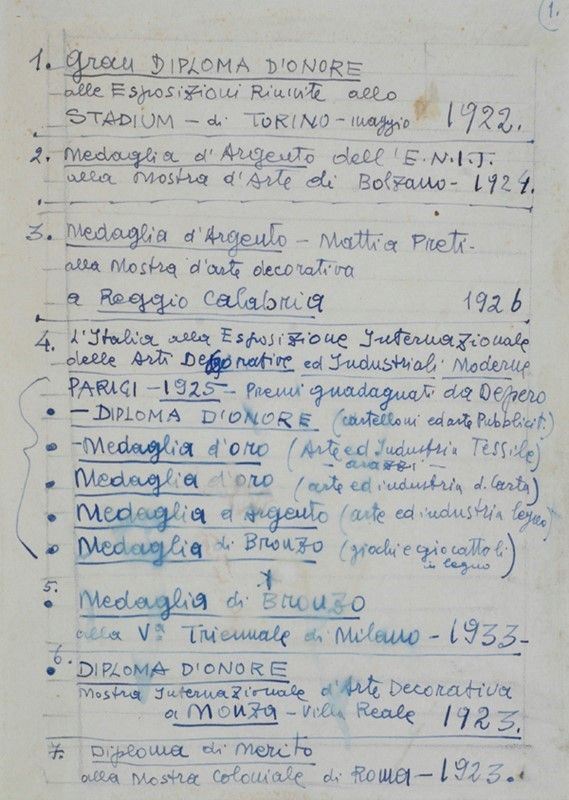 1.
1. Gran DIPLOMA D'ONORE
alle Esposizioni Riunite allo
STADIUM - di TORINO - maggio 1922.
2. Medaglia d'Argento dell'E.N.I.T.
alla Mostra d'Arte di Bolzano - 1924.
3. Medaglia d'Argento - Mattia Preti -
alla Mostra d'arte decorativa
a Reggio Calabria 1926
4. L'Italia alla Esposizione Internazionale
delle Arti Decorative ed Industriali Moderne
PARIGI - 1925 - Premi guadagnati da Depero
• - DIPLOMA D'ONORE (cartelloni ed arte Pubblicit.)
• - Medaglia d'oro (Arte ed Industria Tessile)
- arazzi -
• Medaglia d'oro (arte ed industria d. Carta)
• Medaglia d'Argento (arte ed industria legno)
• Medaglia di Bronzo (giochi e giocattoli
in legno)
5.
• Medaglia di Bronzo
alla Vª Triennale di Milano - 1933 -
6.
• DIPLOMA D'ONORE
Mostra Internazionale d'Arte Decorativa
a MONZA - Villa Reale 1923.
7. Diploma di Merito
alla Mostra Coloniale di Roma - 1923.